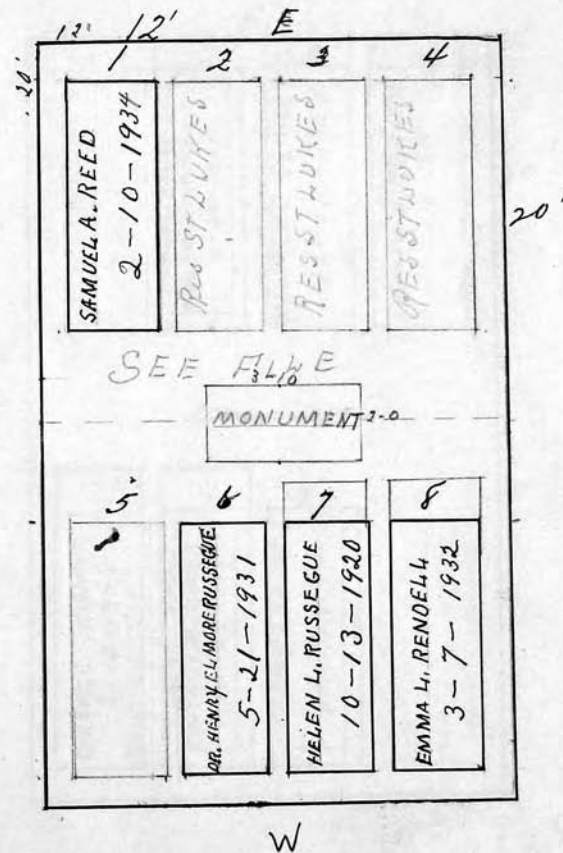 E
12' 12'
20'
1 2 3 4
SAMUEL A. REED
2-10-1934
Res ST LUKES
RES ST LUKES
RES ST LUKES
20'
SEE FILE
3 10
MONUMENT 2-0
5 6 7 8
DR. HENRY ELMORE RUSSEGUE
5-21-1931
HELEN L. RUSSEGUE
10-13-1920
EMMA L. RENDELL
3-7-1932
W